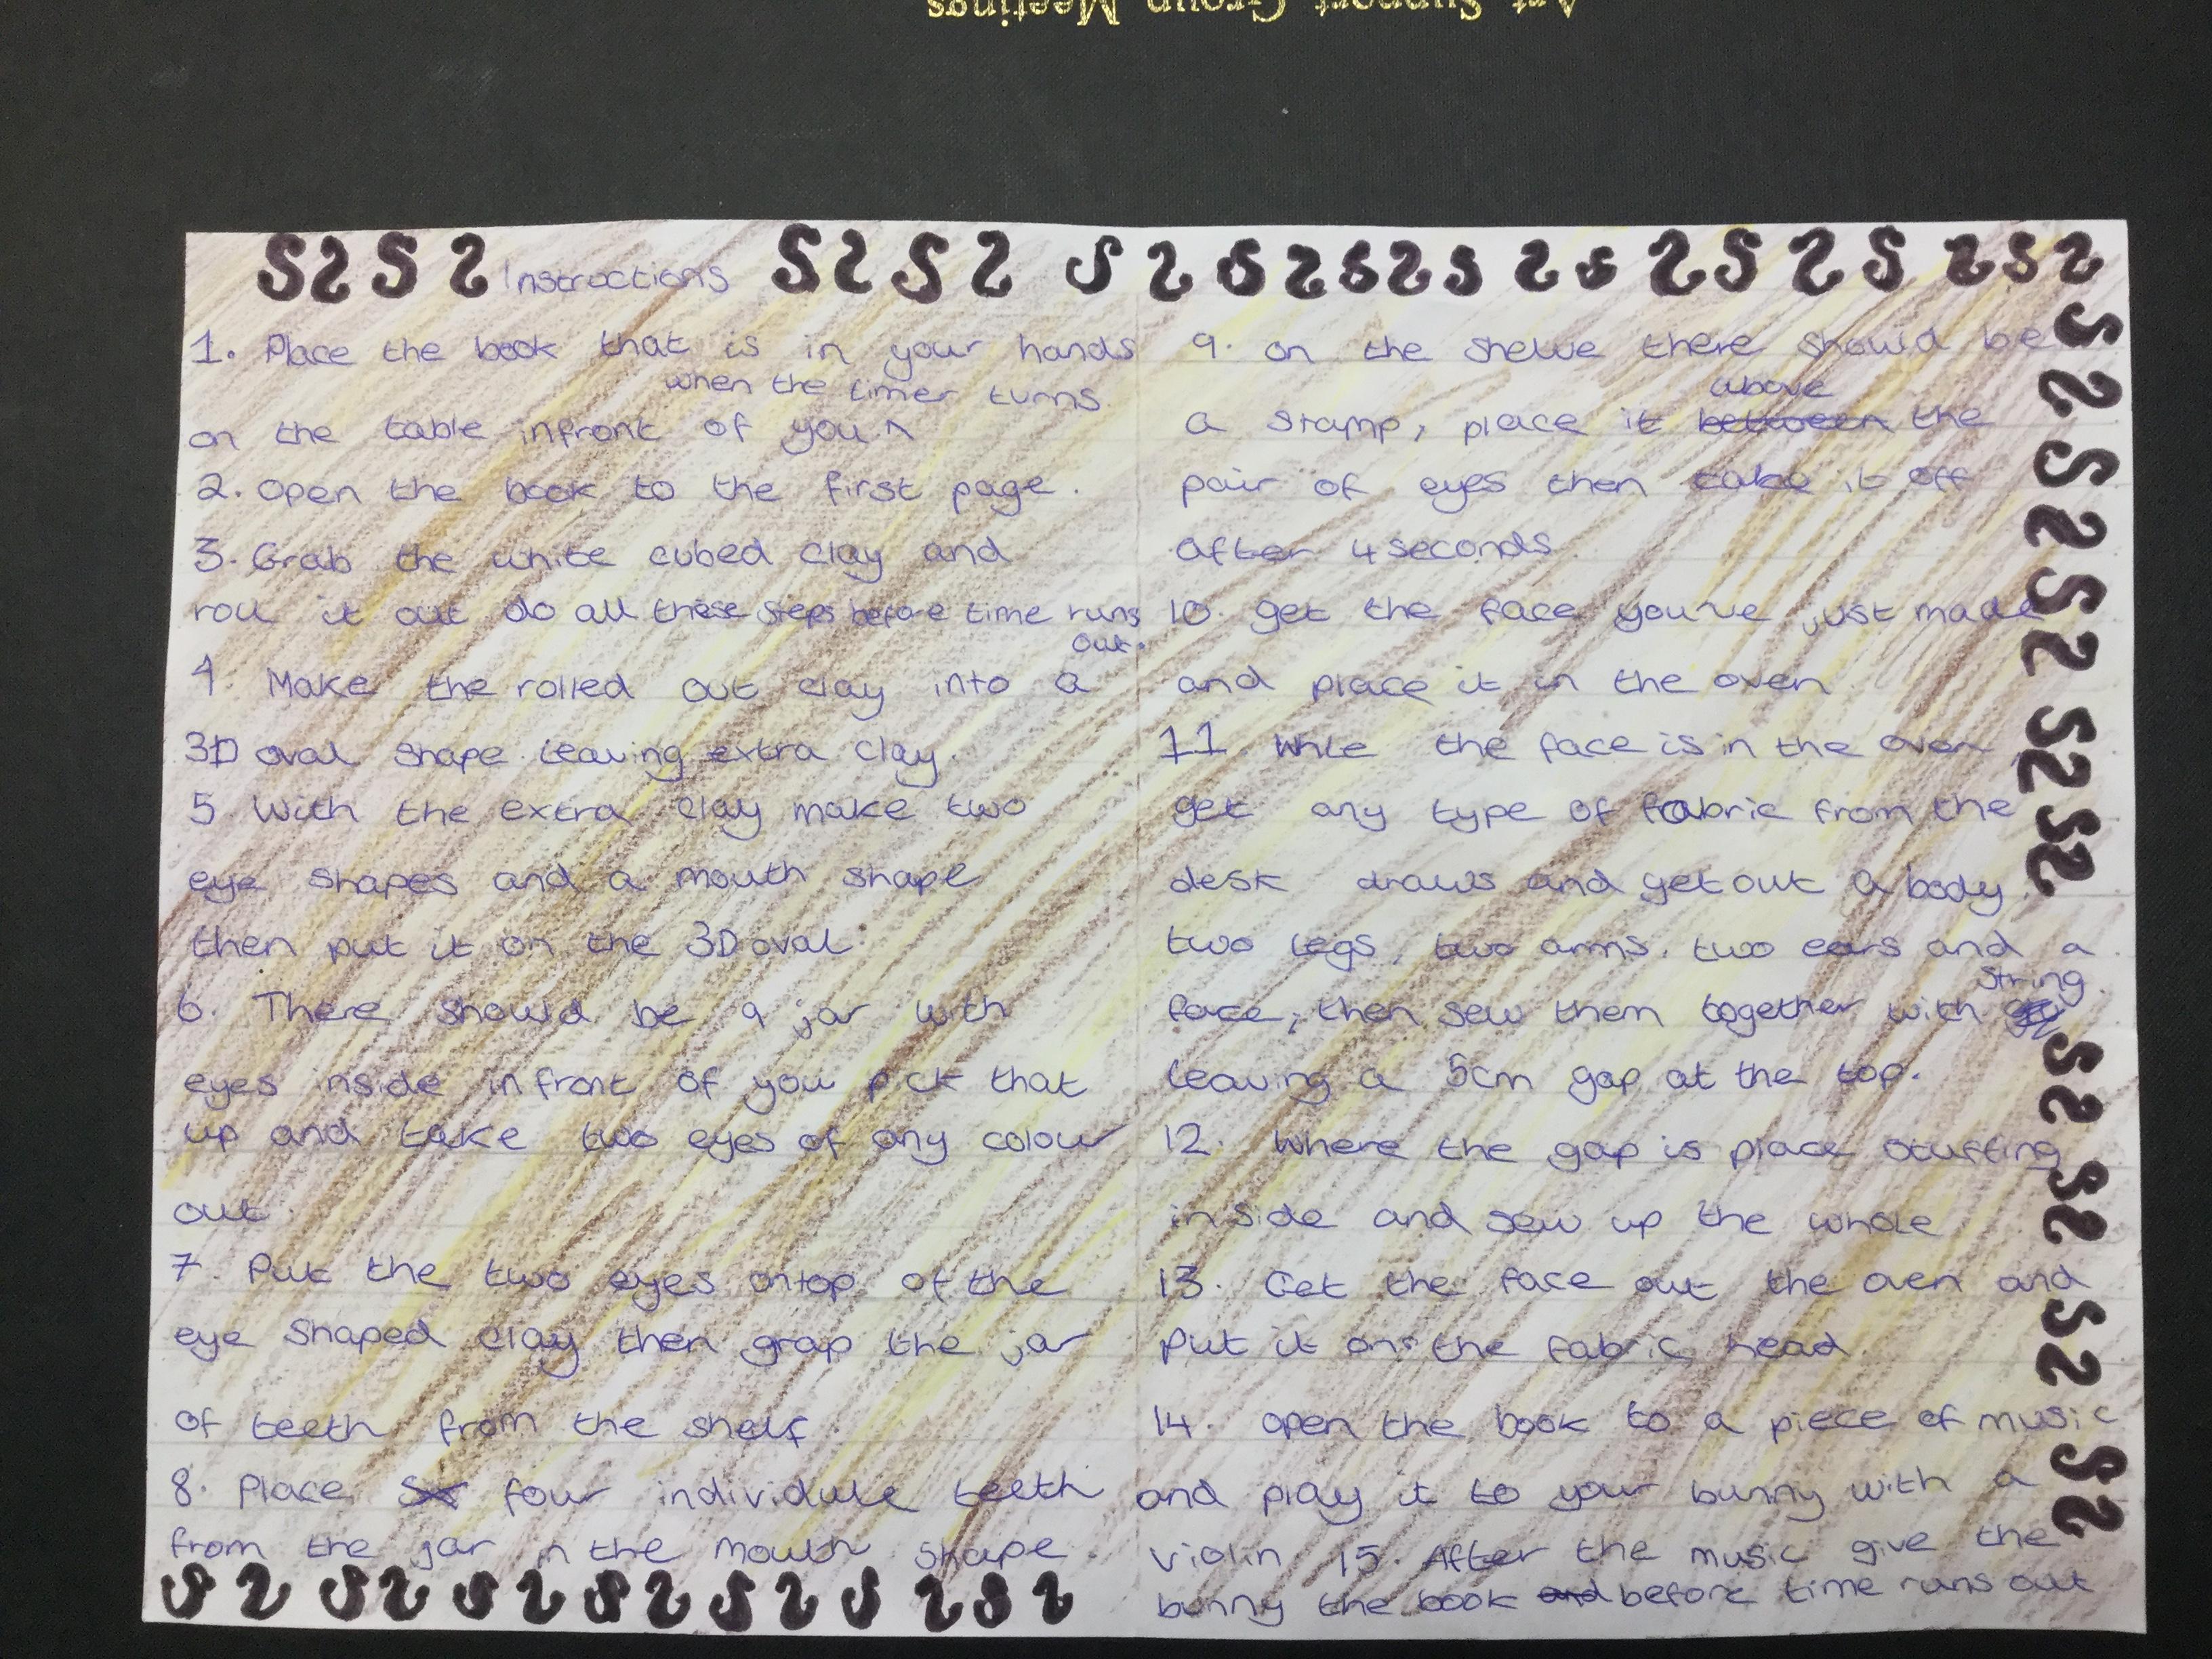 Art Support Group Meetings
Instructions
1. Place the book that is in your hands
when the timer turns
on the table infront of you.^
2. Open the book to the first page.
3. Grab the white cubed clay and
roll it out do all these steps before time runs
out.
4. Make the rolled out clay into a
3D oval shape leaving extra clay.
5. With the extra clay make two
eye shapes and a mouth shape
then put it on the 3D oval.
6. There should be a jar with
eyes inside infront of you pick that
up and take two eyes of any colour
out.
7. Put the two eyes ontop of the
eye shaped clay then grap the jar
of teeth from the shelf.
8. Place four individule teeth
from the jar in the mouth shape.
9. On the shelve there should be
above
a stamp, place it between the
pair of eyes then take it off
after 4 seconds.
10. get the face you've just made
and place it in the oven.
11. While the face is in the oven
get any type of fabric from the
desk draws and get out a body
two legs, two arms, two ears and a
string.
face, then sew them together with
leaving a 5cm gap at the top.
12. Where the gap is place stuffing
inside and sew up the whole
13. Get the face out the oven and
put it on the fabric head.
14. open the book to a piece of music
and play it to your bunny with a
violin 15. After the music give the
bunny the book and before time runs out